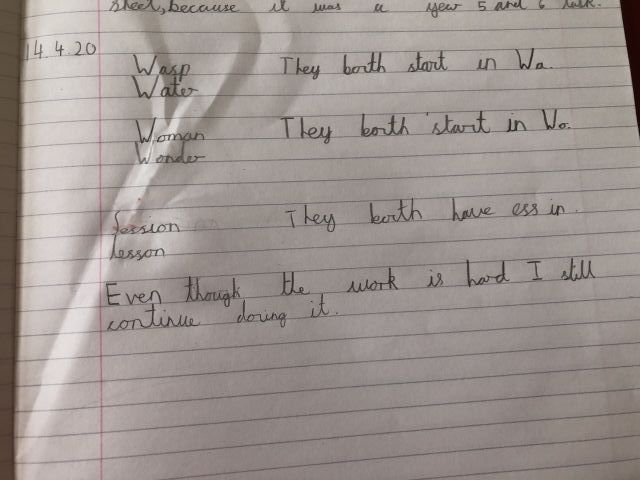 sheet, because it was a year 5 and 6
14.4.20
Wasp They both start in Wa.
Water
Woman They both start in Wo.
Wonder
Session They both have ess in.
lesson
Even though the work is hard I still
continue doing it.